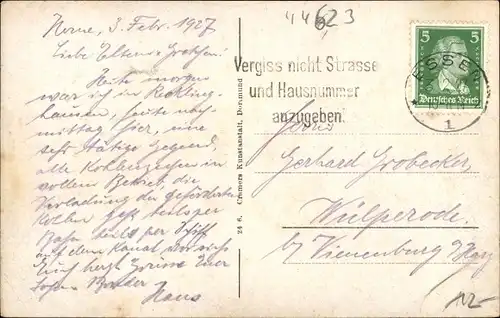 Herne, 3. Febr. 1927
Liebe Eltern u. Gretchen!
Heute morgen
war ich in Reckling-
hausen, heute nach-
mittag hier, eine
sehr tätige Gegend,
alle Kohlenzechen in
vollem Betrieb, die
Verladung der geförderten
Kohlen geht teils per
Bahn teils per Schiff
auf dem Kanal
Euch herzl. Grüsse Euer
Hans
24 6. Cramers Kunstanstalt, Dortmund
44623
Vergiss nicht Strasse
und Hausnummer
anzugeben
5 5
Deutsches Reich
ESSEN
1
Herrn
Gerhard Grobecker,
Wülperode.
b/ Vienenburg Harz
12-